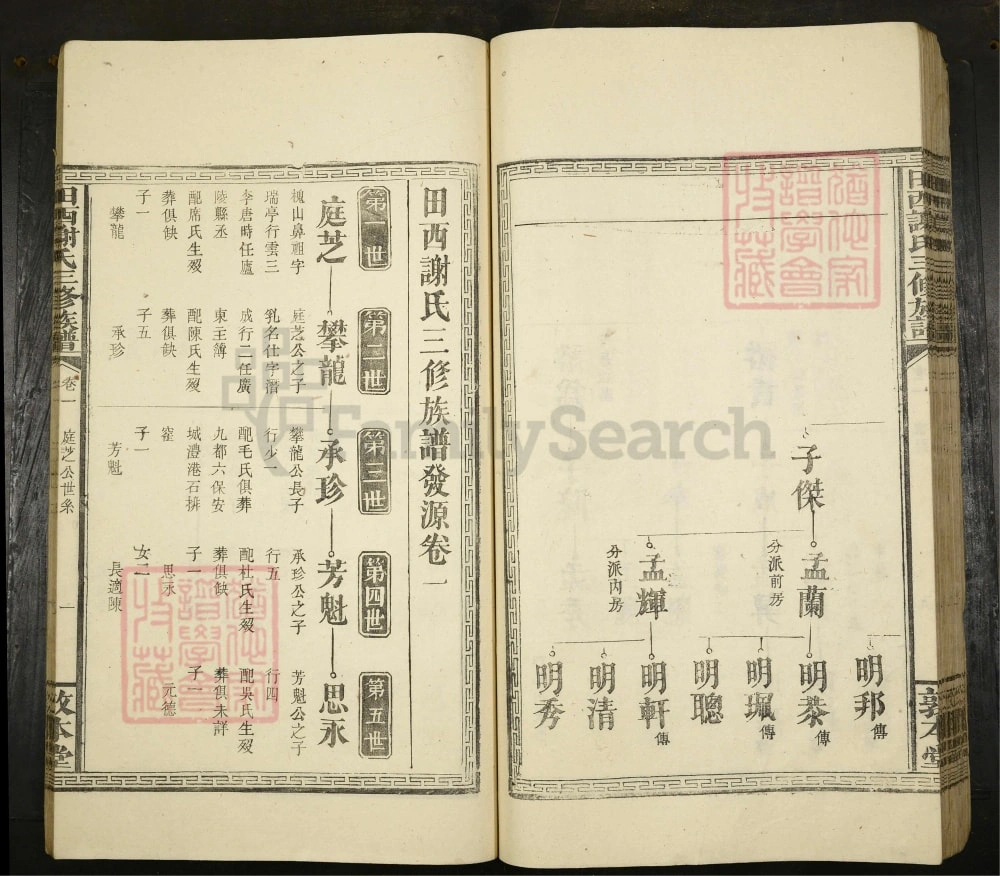 田西謝氏三修族譜
敦本堂
子傑
孟蘭
分派前房
孟輝
分派內房
明邦傳
明恭傳
明珮傳
明聰
明軒傳
明清
明秀
田西謝氏三修族譜發源卷一
第一世
第二世
第三世
第四世
第五世
庭芝
攀龍
承珍
芳魁
思永
槐山鼻祖字
瑞亭行雲三
李唐時任廬
陵縣丞
配席氏生歿
葬俱缺
子一
攀龍
庭芝公之子
乳名仕字潛
成行二任廣
東主簿
配陳氏生歿
葬俱缺
子五
承珍
攀龍公長子
行少一
配毛氏俱葬
九都六保安
城澧港石拚
窰
子一
芳魁
承珍公之子
行五
配杜氏生歿
葬俱缺
子一
思永
女二
長適陳
芳魁公之子
行四
配吳氏生歿
葬俱未詳
子一
元德
田西謝氏三修族譜
卷一
庭芝公世系
一
敦本堂
FamilySearch